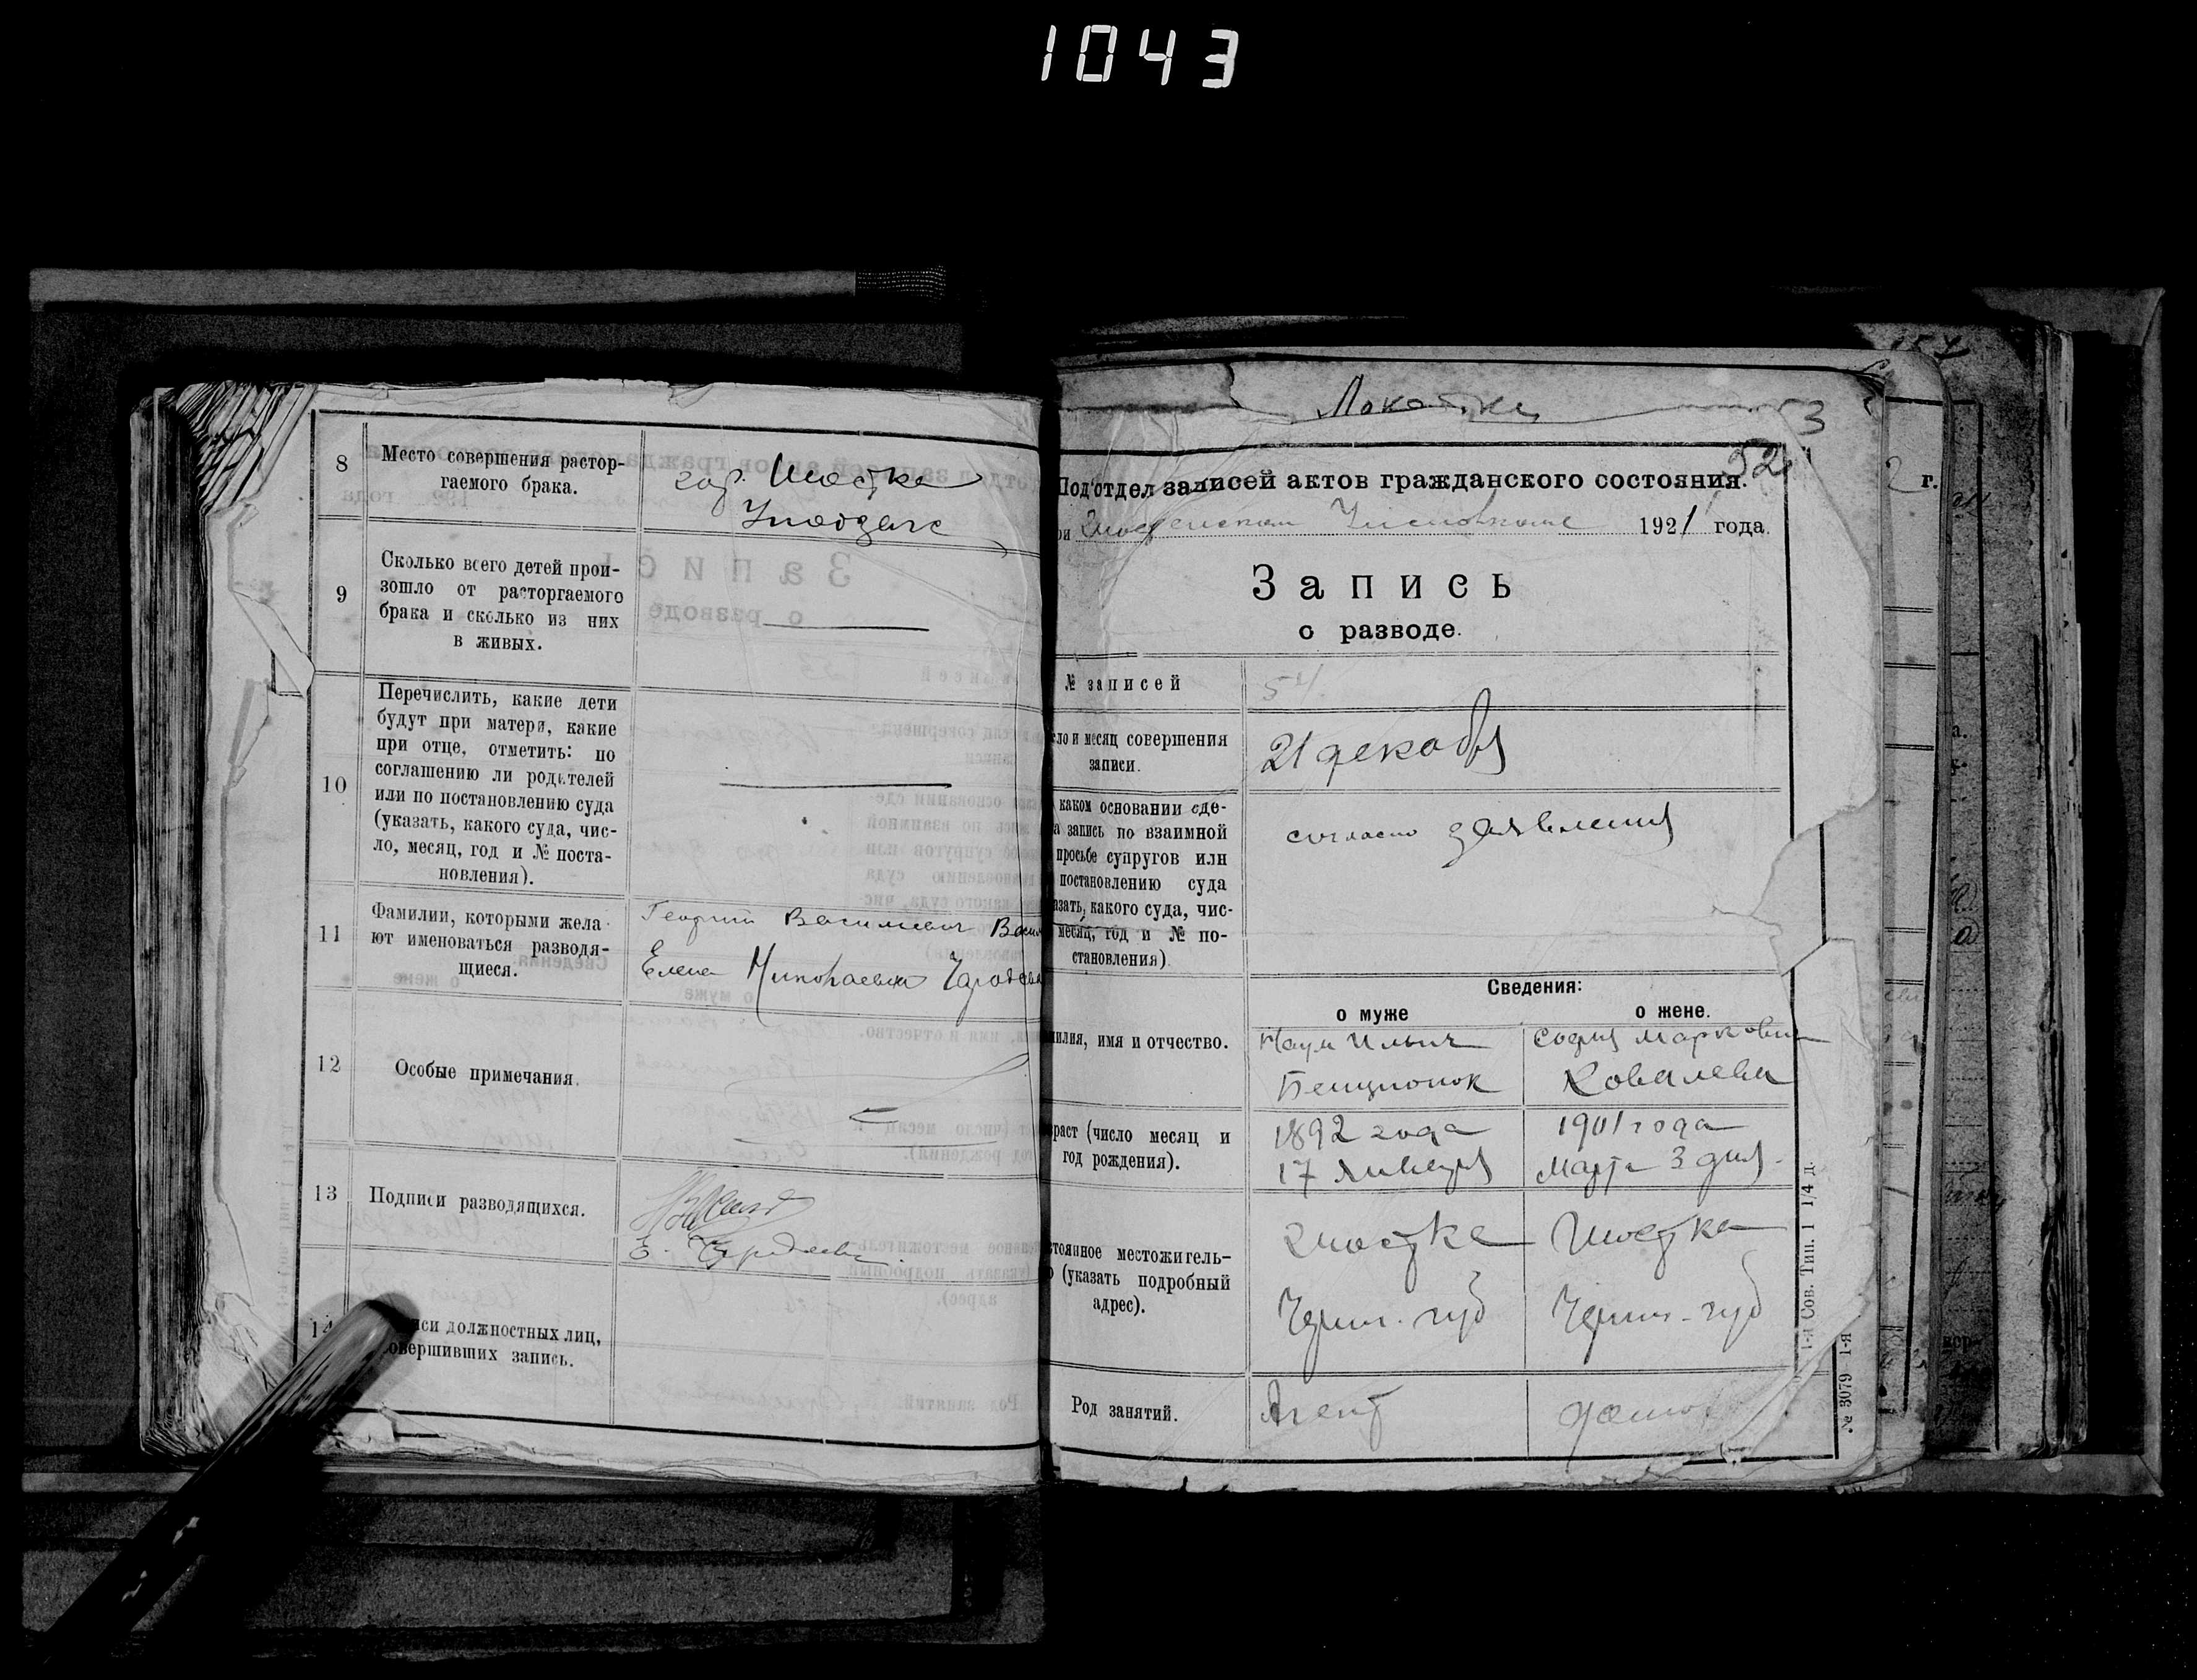 1043
8
Место совершения растор-
гаемого брака.
гор. Шостка
9
Сколько всего детей прои-
зошло от расторгаемого
брака и сколько из них
в живых.
10
Перечислить, какие дети
будут при матери, какие
при отце, отметить: по
соглашению ли родителей
или по постановлению суда
(указать, какого суда, чис-
ло, месяц, год и № поста-
новления).
11
Фамилии, которыми жела
ют именоваться разводя-
щиеся.
Георгий Васильевич
Елена Николаевна
12
Особые примечания.
13
Подписи разводящихся.
14
должностных лиц,
совершивших запись.
3
52
Подотдел записей актов гражданского состояния.
1921 года.
Запись
о разводе.
№ записей
54
месяц совершения
записи.
21 декабря
каком основании сде-
запись по взаимной
просьбе супругов или
постановлению суда
какого суда, чис-
месяц, год и № по-
становления).
согласно заявления
Сведения:
о муже
о жене.
имя и отчество.
Наум Ильич
София Марковна
Ковалева
(число месяц и
год рождения).
1892 года
17 января
1901 года
Марта 3 дня.
местожитель-
(указать подробный
адрес).
Шостка
Шостка
Черниг. губ
Черниг. губ
Род занятий.
Агент
1-я Сов. Тип. 1 1/4 д.
№ 3079 1-я
2 г.